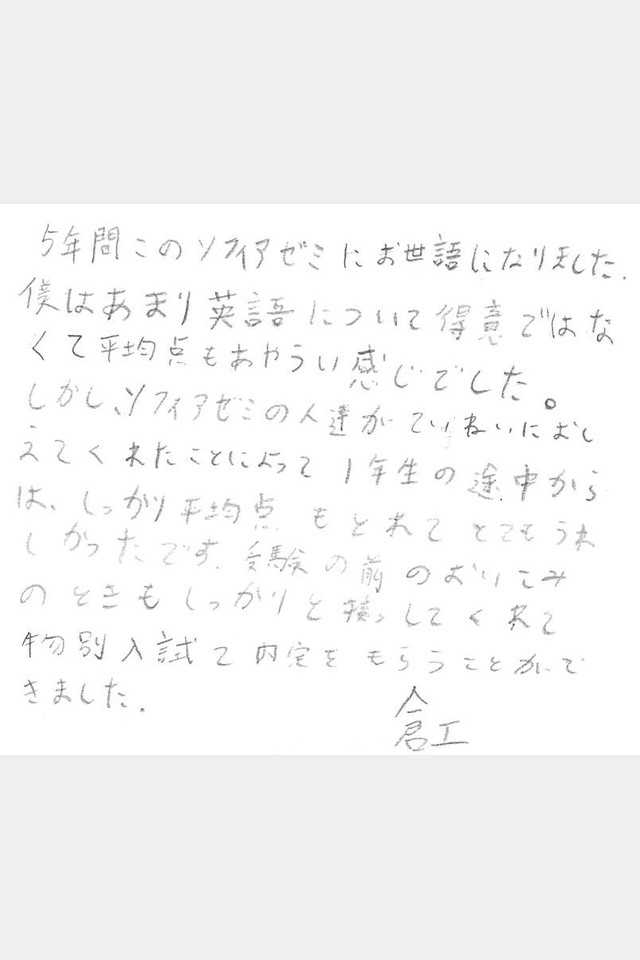 5年間このソフィアゼミにお世語になりました.
僕はあまり英語について得意ではな
くて平均点もあやうい感じでした。
しかし、ソフィアゼミの人達がていねいにおし
えてくれたことによって1年生の途中から
は、しっかり平均点もとれてとてもうれ
しかったです.受験の前のおいこみ
のときもしっかりと接っしてくれて
特別入試で内定をもらうことがで
きました.
倉工